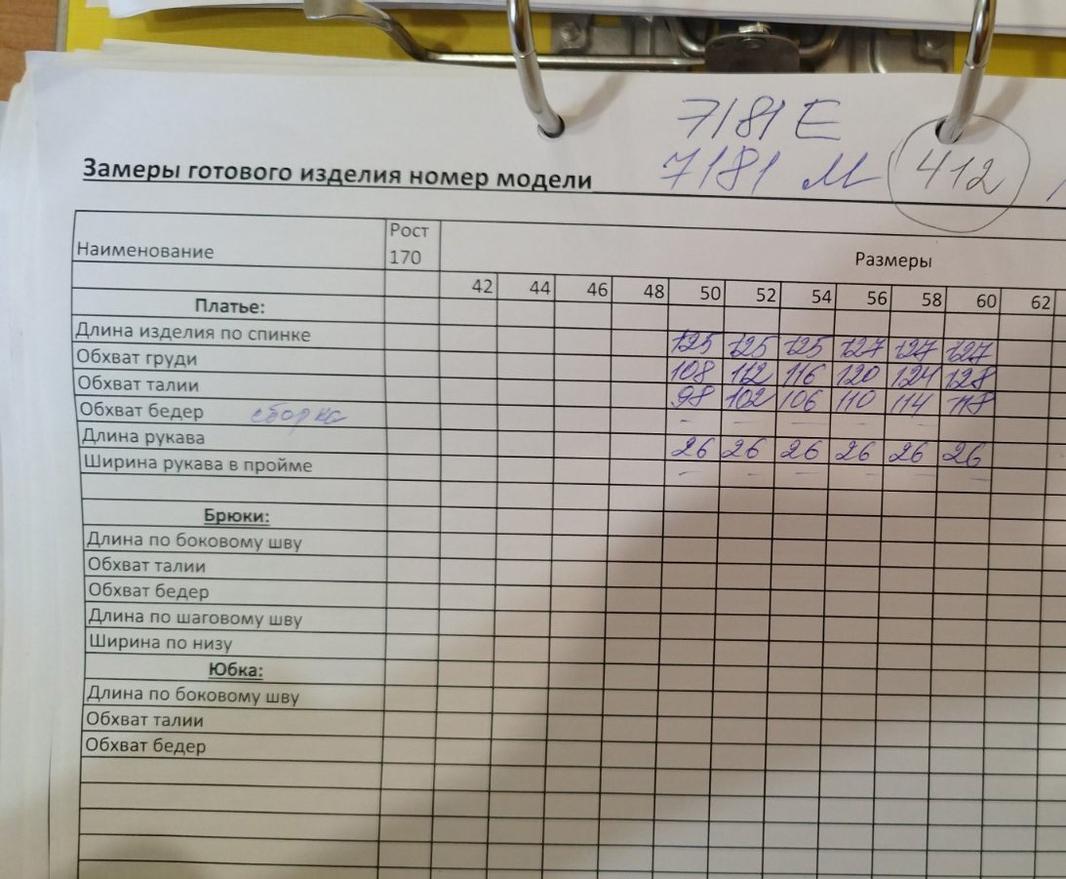 7181 Е
Замеры готового изделия номер модели 7181 М 412
Наименование Рост 170 Размеры
42 44 46 48 50 52 54 56 58 60 62
Платье:
Длина изделия по спинке 125 125 125 127 127 127
Обхват груди 108 112 116 120 124 128
Обхват талии 98 102 106 110 114 118
Обхват бедер сборка - - - - - -
Длина рукава 26 26 26 26 26 26
Ширина рукава в пройме - - - - - -
Брюки:
Длина по боковому шву
Обхват талии
Обхват бедер
Длина по шаговому шву
Ширина по низу
Юбка:
Длина по боковому шву
Обхват талии
Обхват бедер